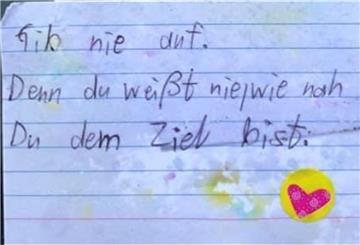 Gib nie auf.
Denn du weißt nie, wie nah
Du dem Ziel bist.